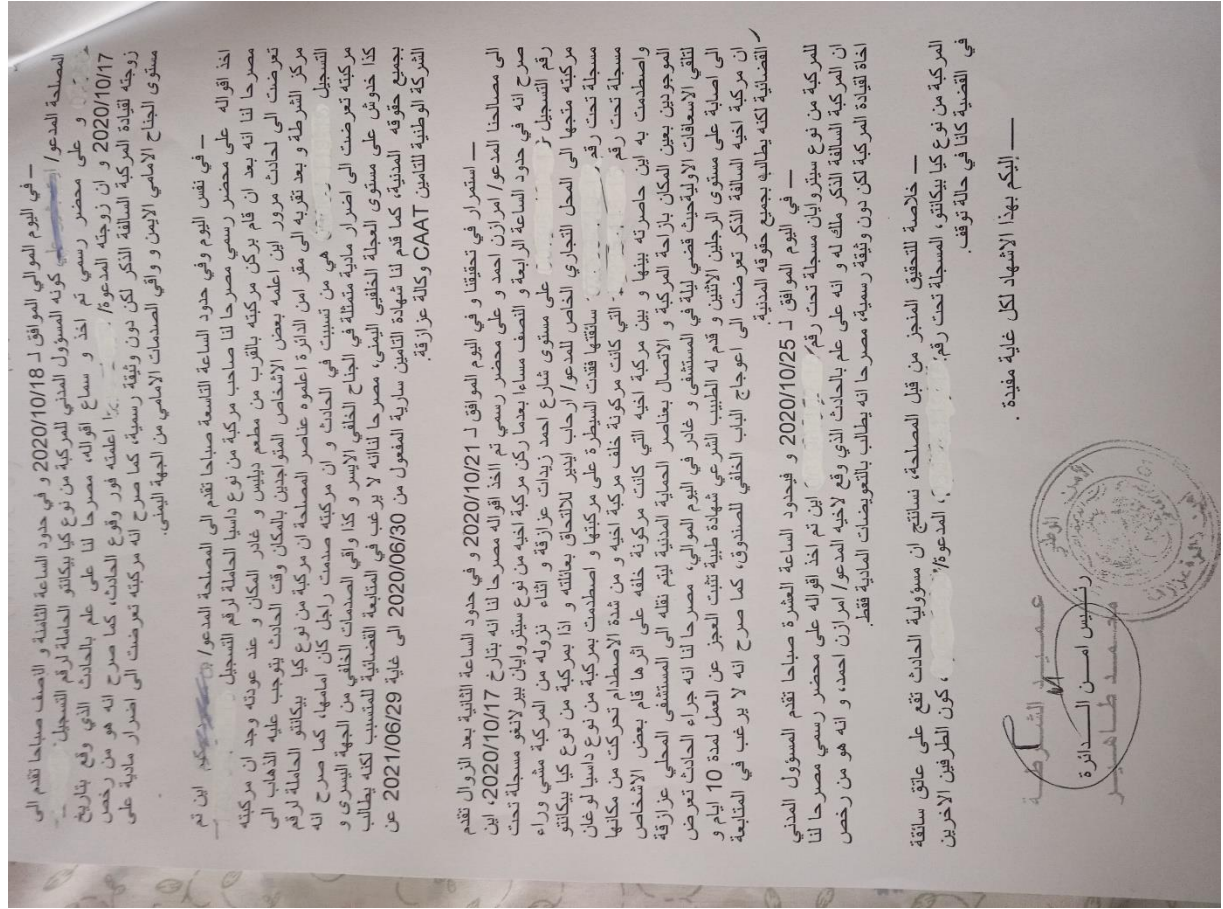 – في اليوم الموالي الموافق لـ 2020/10/18 و في حدود الساعة الثامنة و الاصف صباحا تقدم الى
المصلحة المدعو/ كونه المسؤول المدني للمركبة من نوع كيا بيكانتو الحاملة لرقم التسجيل
و على محضر رسمي تم اخذ و سماع اقواله، مصرحا لنا على علم بالحادث الذي وقع بتاريخ
2020/10/17 و ان زوجته المدعوة/ اعلمته فور وقوع الحادث، كما صرح انه هو من رخص
زوجته لقيادة المركبة السالفة الذكر لكن دون وثيقة رسمية، كما صرح انه مركبته تعرضت الى اضرار مادية على
مستوى الجناح الامامي الايمن و واقي الصدمات الامامي من الجهة اليمنى.
– في نفس اليوم وفي حدود الساعة التاسعة صباحا تقدم الى المصلحة المدعو/ اين تم
اخذ اقواله على محضر رسمي مصرحا لنا صاحب مركبة من نوع داسيا الحاملة لرقم التسجيل
مصرحا لنا انه بعد ان قام بركن مركبته بالقرب من مطعم ديليس و غادر المكان و عند عودته وجد ان مركبته
تعرضت الى لحادث مرور اين اعلمه بعض الاشخاص المتواجدين بالمكان وقت الحادث بتوجب عليه الذهاب الى
مركز الشرطة و بعد تقربه الى مقر امن الدائرة اعلموه عناصر المصلحة ان مركبة من نوع كيا بيكانتو الحاملة لرقم
التسجيل هي من تسببت في الحادث و ان مركبته صدمت راجل كان امامها، كما صرح انه
مركبته تعرضت الى اضرار مادية متمثلة في الجناح الخلفي الايسر و كذا واقي الصدمات الخلفي من الجهة اليسرى و
كذا خدوش على مستوى العجلة الخلفي اليمنى، مصرحا لناانه لا يرغب في المتابعة القضائية للمتسبب لكنه يطالب
بجميع حقوقه المدنية، كما قدم لنا شهادة التامين سارية المفعول من 2020/06/30 الى غاية 2021/06/29 عن
الشركة الوطنية للتامين CAAT وكالة عزازقة.
– استمرار في تحقيقنا و في اليوم الموافق لـ 2020/10/21 و في حدود الساعة الثانية بعد الزوال تقدم
الى مصالحنا المدعو/ امرازن احمد و على محضر رسمي تم ااخذ اقواله مصرحا لنا انه بتارخ 2020/10/17، اين
صرح انه في حدود الساعة الرابعة و النصف مساءا بعدما ركن مركبة اخيه من نوع سيتروايان بيرلانغو مسجلة تحت
رقم التسجيل على مستوى شارع احمد زيدات عزازقة و اثناء نزوله من المركبة مشي وراء
مركبته متجها الى المحل التجاري الخاص للمدعو/ ارحاب ايدير للالتحاق بعائلته و اذا بمركبة من نوع كيا بيكانتو
مسجلة تحت رقم سائقتها فقدت السيطرة على مركبتها و اصطدمت بمركبة من نوع داسيا لوغان
مسجلة تحت رقم التي كانت مركونة خلف مركبة اخيه و من شدة الاصطدام تحركت من مكانها
واصطدمت به اين حاصرته بينها و بين مركبة اخيه التي كانت مركونة خلفه على اثرها قام بعض الاشخاص
الموجودين بعين المكان بازاحة المركبة و الاتصال بعناصر الحماية المدنية ليتم نقله الى المستشفى المحلي عزازقة
لتلقي الاسعافات الاوليةحيث قضي ليلة في المستشفى و غادر في اليوم الموالي، مصرحا لنا انه جراء الحادث تعرض
الى اصابة على مستوى الرجلين الاثنين و قدم له الطبيب الشرعي شهادة طبية تثبت العجز عن العمل لمدة 10 ايام و
ان مركبة اخيه السالفة الذكر تعرضت الى اعوجاج الباب الخلفي للصندوق، كما صرح انه لا يرغب في المتابعة
القضائية لكنه يطالب بجميع حقوقه المدنية
– في اليوم الموافق لـ 2020/10/25 و فيحدود الساعة العشرة صباحا تقدم المسؤول المدني
للمركبة من نوع سيتروايان مسجلة تحت رقم اين تم اخذ اقواله على محضر رسمي مصرحا لنا
ان المركبة السالفة الذكر ملك له و انه على علم بالحادث الذي وقع لاخيه المدعو/ امرازن احمد، و انه هو من رخص
اخاة لقيادة المركبة لكن دون وثيقة رسمية، مصرحا انه يطالب بالتعويضات المادية فقط.
– خلاصة للتحقيق المنجز من قبل المصلحة، نسانتج ان مسؤولية الحادث تقع على عاتق سائقة
المركبة من نوع كيا بيكانتو، المسجلة تحت رقم: ، المدعوة/ ، كون الطرفين الاخرين
في القضية كانا في حالة توقف.
— إليكم بهذا الاشهاد لكل غاية مفيدة.
عميد الشرطة
رئيس امن الدائرة
محمد طاهير